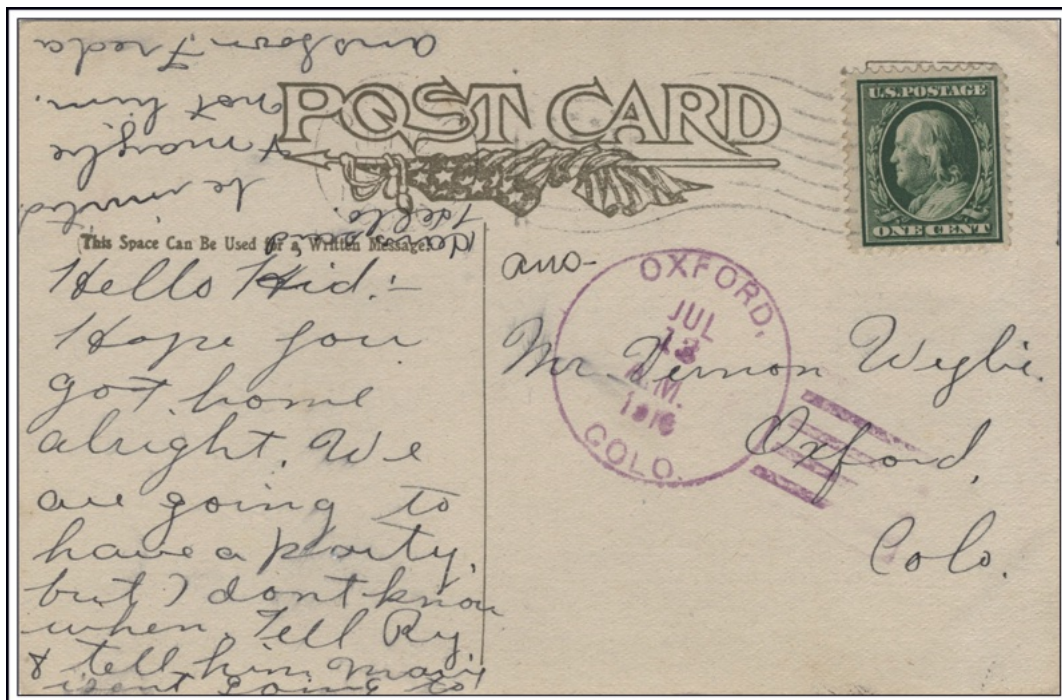 POST CARD
U.S. POSTAGE
ONE CENT
This Space Can Be Used for a Written Message.
Hello Kid:-
Hope you
got home
alright. We
are going to
have a party,
but I dont know
when. Tell Ry
& tell him
isent going to
be invited
& maybe
not him.
ans soon Freda
Idella.
ans-
OXFORD,
JUL
13
A.M.
COLO.
Mr. Vernon Wylie.
Oxford,
Colo.